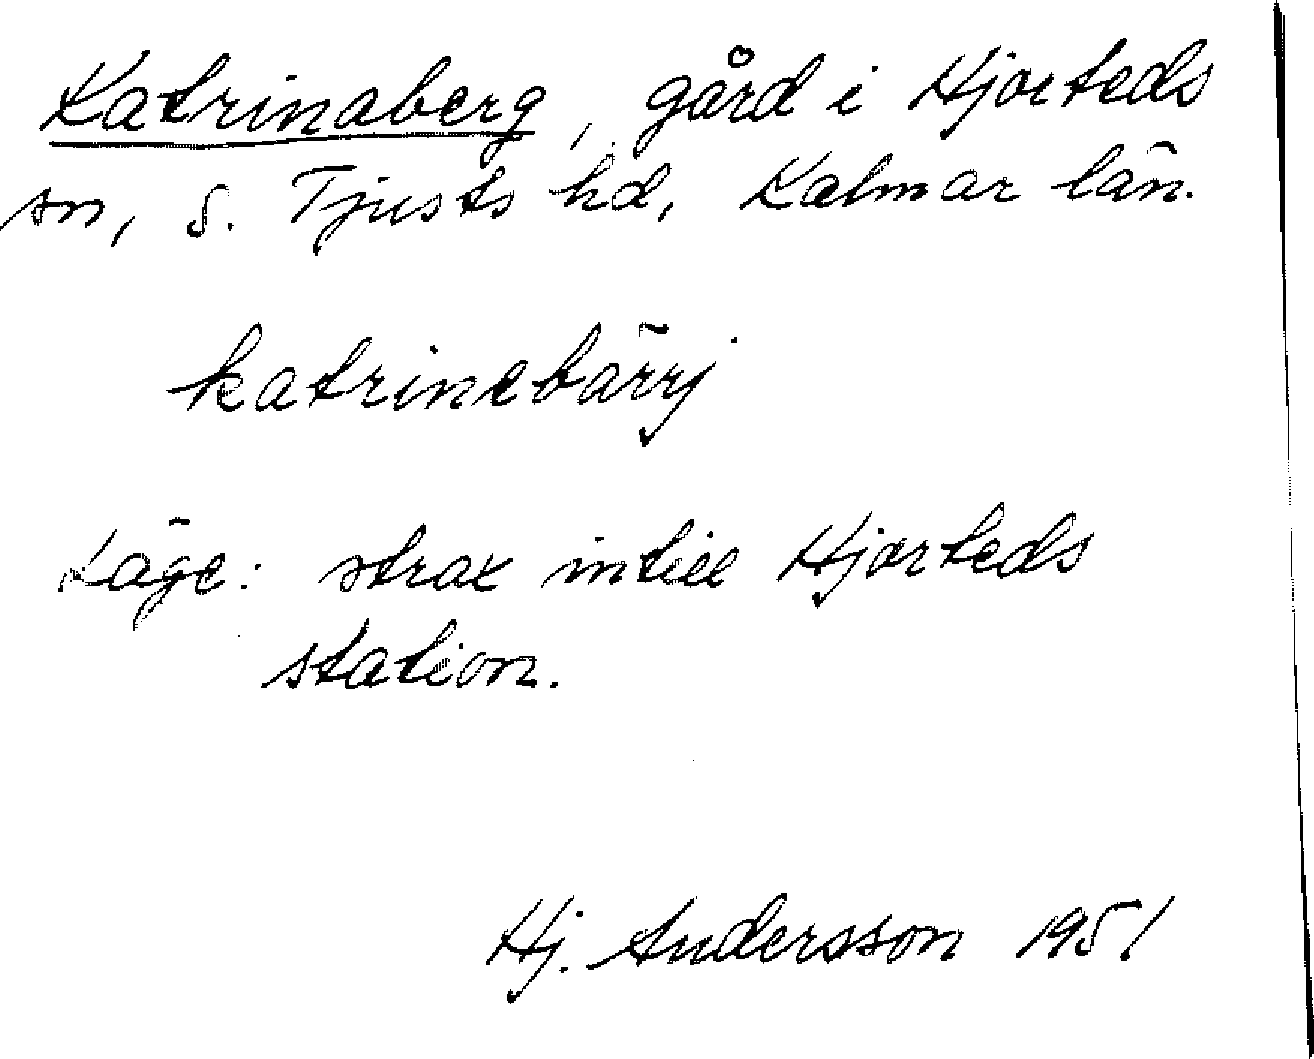 Katrinaberg, gård i Hjorteds
sn, S. Tjusts hd, Kalmar län.
katrinebärrj
Läge: strax intill Hjorteds
station.
Hj. Andersson 1951